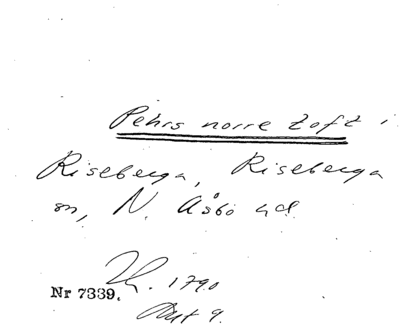 Pehrs norre toft i
Riseberga, Riseberga
sn, N. Åsbo hd.
1790
Nr 7339.
Akt 9.